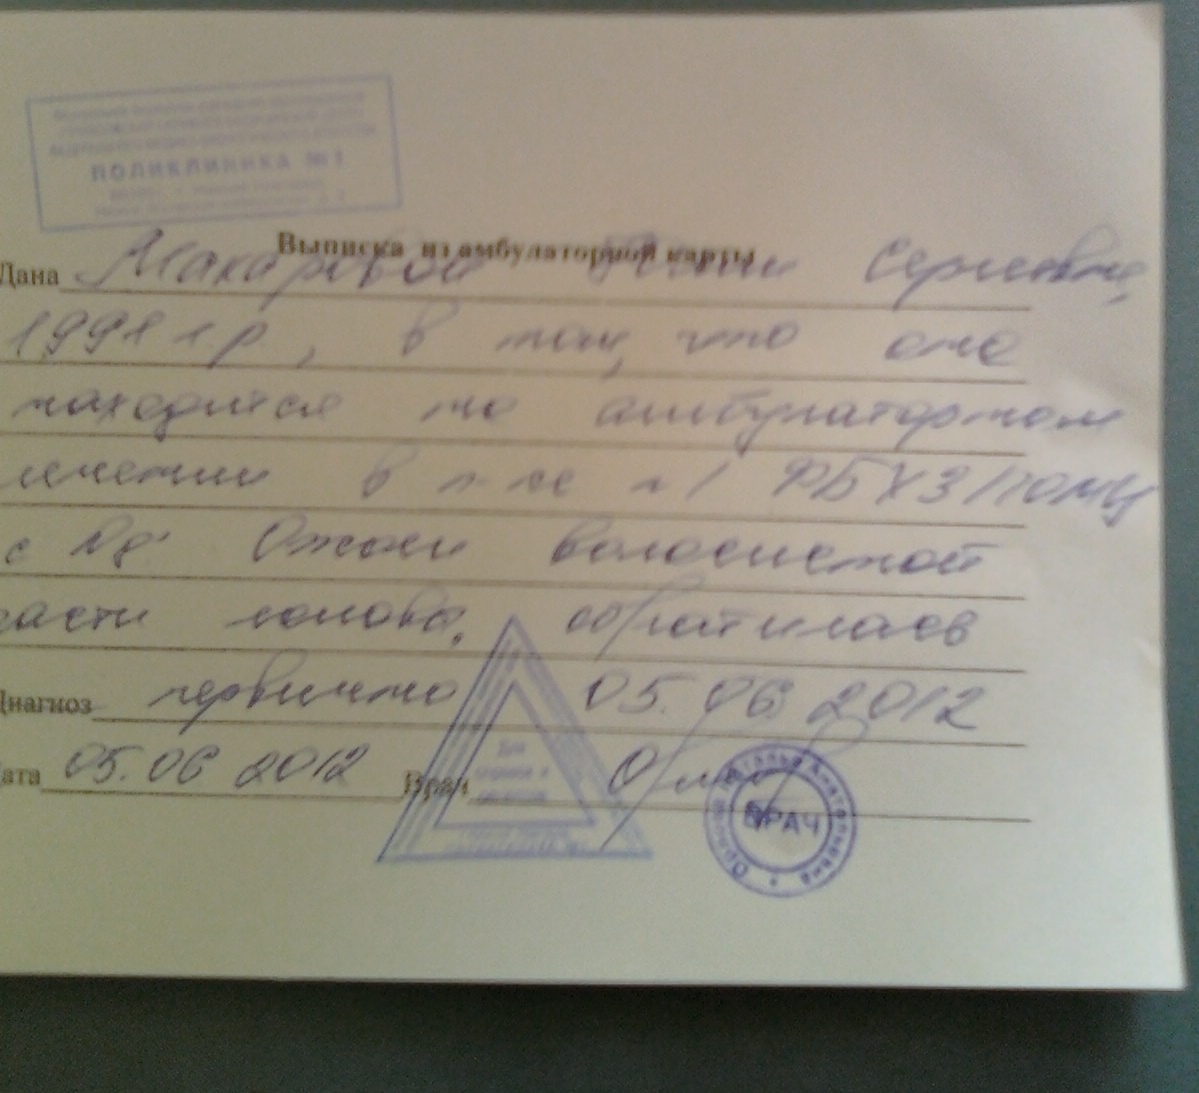 ПОЛИКЛИНИКА №1
Выписка из амбулаторной карты
Дана Макаровой Сергеевне,
1991 г.р, в том, что она
находится на амбулаторном
лечении в п-ке №1 ФБУЗ ПОМЦ
с Ds: Ожоги волосистой
части головы, обратилась
Диагноз первично 05.06.2012
Дата 05.06 2012 Врач
Наталья Анатольевна
ВРАЧ